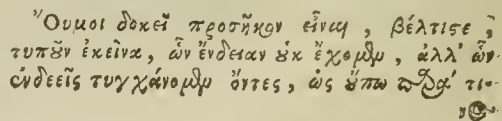 Ὅυμοι δοκεῖ προσῆκον εἶναι, βέλτισε,
τυποῦν ἐκεῖνα, ὧν ἔνδειαν οὐκ ἔχομεν, ἀλλ' ὧν
ἐνδεεῖς τυγχάνομεν ὄντες, ὡς οὔπω παρά τι-
νος